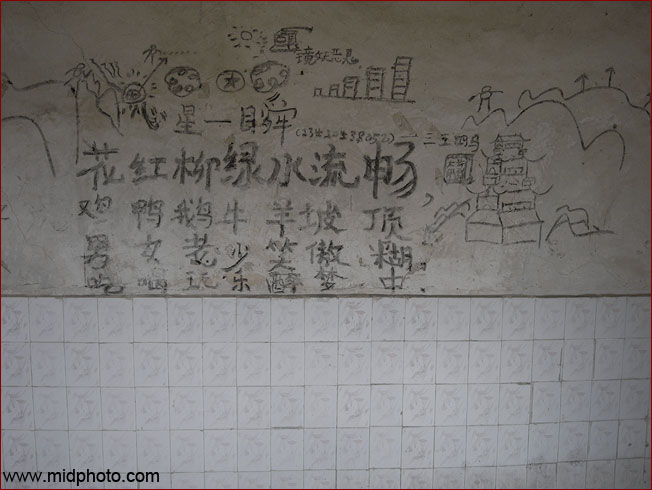 镜妖恶息
星一目舜
一三五四号
花红柳绿水流畅，
鸡鸭鹅牛羊坡顶
男女老少笑傲糊
吃喝玩乐醉梦中
www.midphoto.com